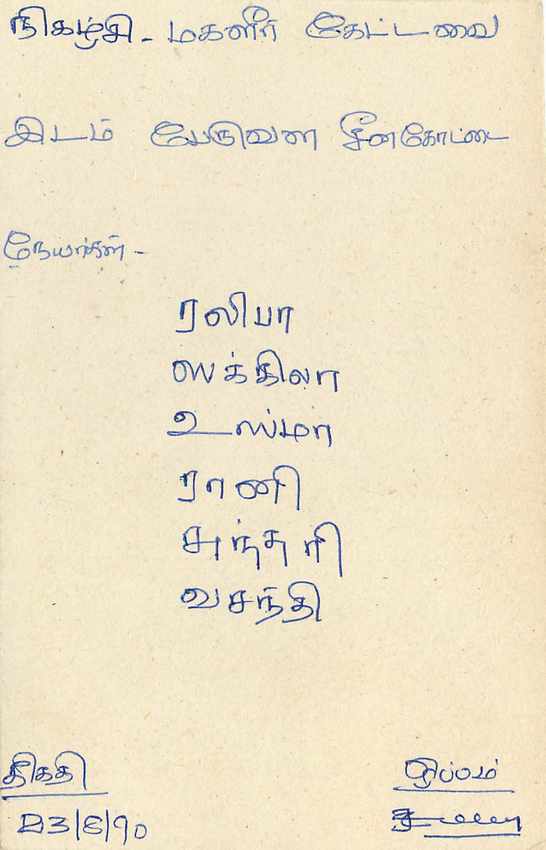 நிகழ்சி - மகளீர் கேட்டவை
இடம் பேருவள சீனகோட்டை
நேயர்கள் -
ரலிபா
ஸக்கிலா
உஸ்மா
ராணி
சுந்தரி
வசந்தி
திகதி ஒப்பம்
23/6/90